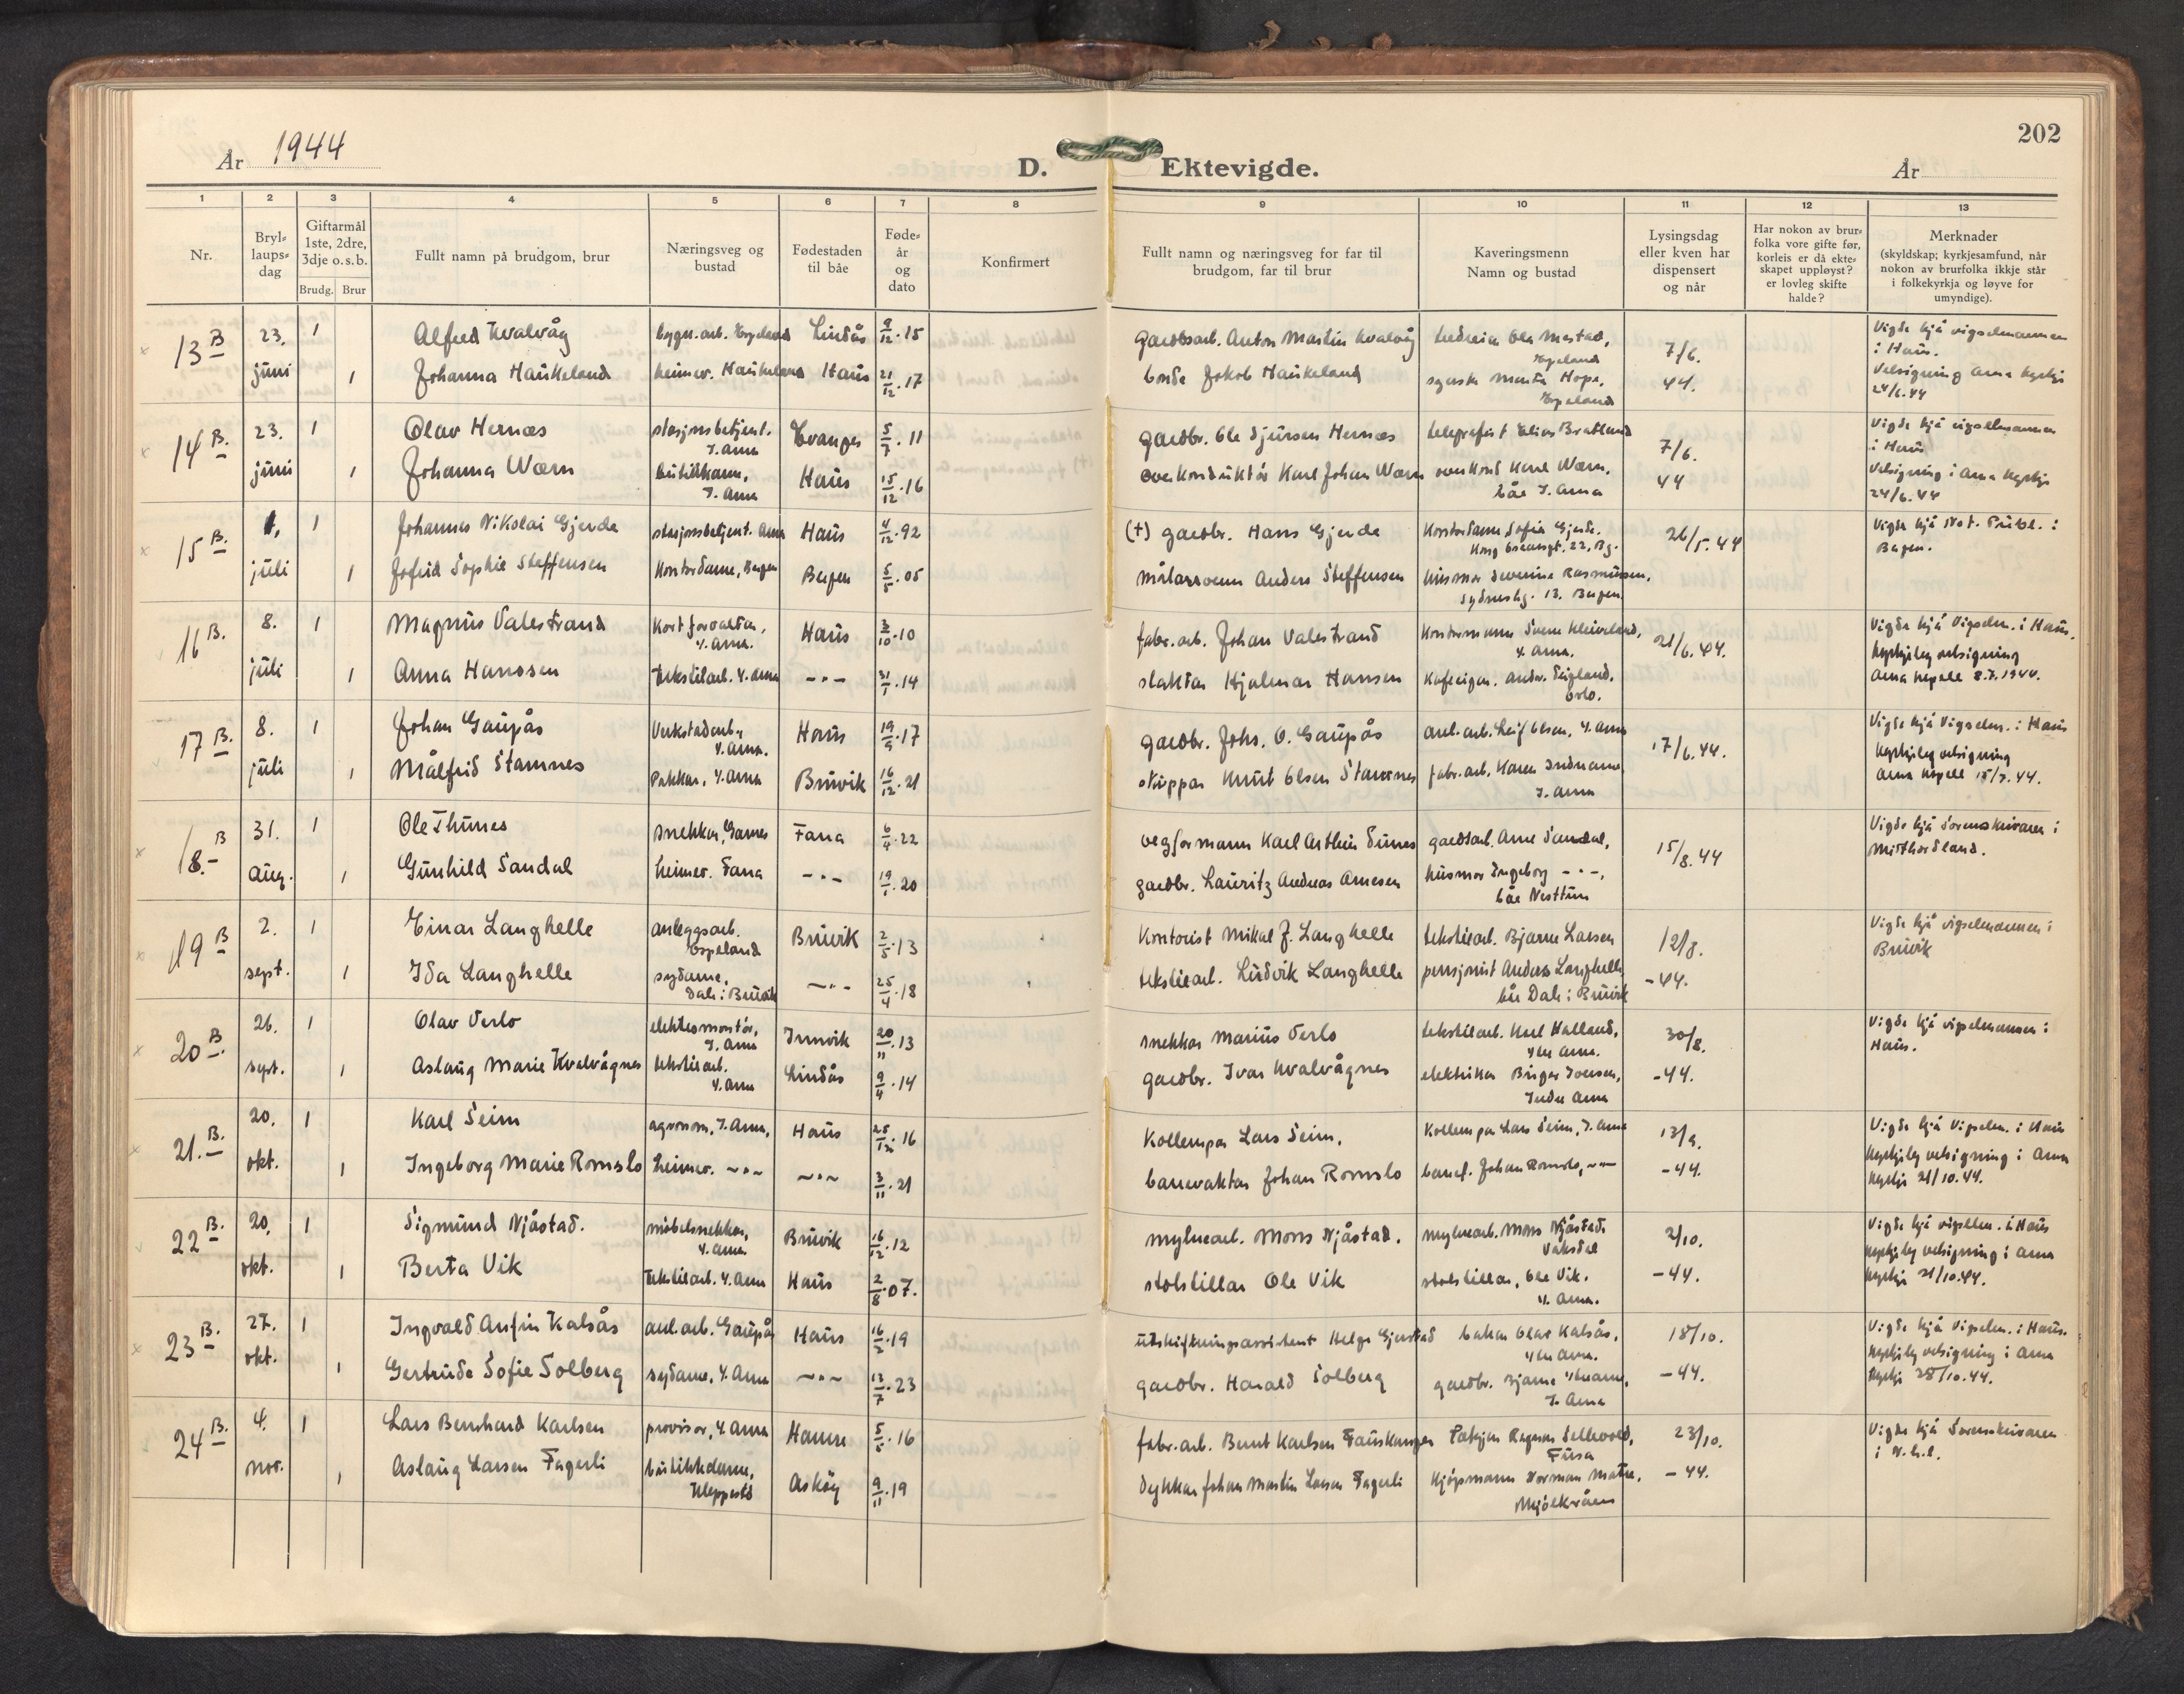 202
År 1944
D. Ektevigde.
År
1 2 3 4 5 6 7 8 9 10 11 12 13
Nr.
Bryl-
laups-
dag
Giftarmål
1ste, 2dre,
3dje o.s.b.
Brudg. Brur
Fullt namn på brudgom, brur
Næringsveg og
bustad
Fødestaden
til båe
Føde-
år
og
dato
Konfirmert
Fullt namn og næringsveg for far til
brudgom, far til brur
Kaveringsmenn
Namn og bustad
Lysingsdag
eller kven har
dispensert
og når
Har nokon av brur-
folka vore gifte før,
korleis er då ekte-
skapet uppløyst?
er lovleg skifte
halde?
Merknader
(skyldskap; kyrkjesamfund, når
nokon av brurfolka ikkje står
i folkekyrkja og løyve for
umyndige).
13 B 23. 1 Alfred Kvalvåg bygn.arb. Espeland Lindås 9/12.15 gardsarb. Anton Martin Kvalvåg Ole Mestad, 7/6. Vigde hjå vigselmannen
Espeland i Haus.
juni 1 Johanna Haukeland heimev. Haukeland Haus 21/12.17 bonde Jakob Haukeland Hope, 44. Velsigning Arna kyrkje
Espeland 24/6.44
14 B. 23. 1 Olav Hernæs stasjonsbetjent. Evanger 5/7.11 gardbr. Ole Sjursen Hernæs telegrafist Elias Bratland 7/6. Vigde hjå vigselmannen
I. Arna i Haus
juni 1 Johanna Wærn butikkdame, Haus 15/12.16 overkonduktør Karl Johan Wærn overkond Karl Wærn, 44 Velsigning i Arna kyrkje
I. Arna båe I. Arna 24/6.44
15 B. 1. 1 Johannes Nikolai Gjerde stasjonsbetjent. Arna Haus 4/12.92 (†) gardbr. Hans Gjerde Kontordame Sofie Gjerde. 26/5.44 Vigde hjå Not. Publ. i
Kong Oscarsgt. 22, Bg. Bergen.
juli 1 Jofrid Sophie Steffensen Kontordame, Bergen Bergen 5/5.05 målarsvenn Anders Steffensen husmor Severine Rasmussen,
13. Bergen.
16 B. 8. 1 Magnus Valestrand Haus 3/10.10 fabr.arb. Johan Valestrand Kontormann Kleiveland, 21/6.44. Vigde hjå Vigselm. i Haus.
Y. Arna. Y. Arna. Kyrkjeleg velsigning
juli 1 Anna Hanssen tekstilarb. Y. Arna -"- 31/1.14 slaktar Hjalmar Hansen Kafeeigar. Andr. Oslo. Arna kapell 8.7.1944.
17 B. 8. 1 Johan Gaupås Verkstadarb., Haus 19/9.17 gardbr. Johs. O. Gaupås anl.arb. Leif Olsen, Y. Arna 17/6.44. Vigde hjå Vigselm. i Haus
Y. Arna. Kyrkjeleg velsigning
juli 1 Målfrid Stamnes Pakkar, Y. Arna Bruvik 16/12.21 skippar Knut Olsen Stamnes fabr.arb. Karen Indrearne Arna kapell 15/7.44.
I. Arna
18.- B 31. 1 Ole Thunes snekkar, Garnes Fana 6/4.22 vegformann Karl Tunes gardsarb. Arne Sandal, 15/8.44 Vigde hjå Sorenskrivaren i
Midthordland.
aug. 1 Gunhild Sandal heimev. Fana -"- 19/1.20 gardbr. Lauritz Andreas Arnesen husmor Ingeborg -"-,
båe Nesttun
19 B 2. 1 Einar Langhelle anleggsarb. Bruvik 2/5.13 Kontorist Mikal J. Langhelle tekstilarb. Bjarne Larsen 12/8. Vigde hjå vigselmannen i
Espeland Bruvik
sept. 1 Ida Langhelle sydame, -"- 25/4.18 tekstilarb. Ludvik Langhelle pensjonist Anders Langhelle -44.
Dale i Bruvik båe Dale i Bruvik
20 B. 26. 1 Olav Verlo elektromontør, Innvik 20/11.13 snekkar Marius Verlo tekstilarb. Karl Halland, 30/8. Vigde hjå vigselmannen i
I. Arna Ytre Arna. Haus.
sept. 1 Aslaug Marie Kvalvågnes tekstilarb. Lindås 9/4.14 gardbr. Ivar Kvalvågnes elektrikar Birger Iversen, -44.
Y. Arna Indre Arna
21. B. 20. 1 Karl Seim agronom, I. Arna, Haus 25/12.16 Kollempar Lars Seim, Kollempar Lars Seim, I. Arna 13/9. Vigde hjå Vigselm. i Haus
okt. 1 Ingeborg Marie Romslo heimev. -"- -"- 3/11.21 banevaktar Johan Romslo banef. Johan Romslo, -"- -44. Kyrkjeleg velsigning i Arna
kyrkje 21/10.44.
22 B. 20. 1 Sigmund Njåstad. møbelsnekkar, Bruvik 16/12.12 mylnearb. Mons Njåstad. mylnearb. Mons Njåstad. 2/10. Vigde hjå vigselm. i Haus
Y. Arna Vaksdal Kyrkjeleg velsigning i Arna
okt. 1 Berta Vik tekstilarb. Y. Arna Haus 2/8.07. stolstillar Ole Vik stolstillar, Ole Vik. -44. kyrkje 21/10.44.
Y. Arna.
23 B. 27. 1 Ingvald Anfin Kalsås anl.arb. Gaupås Haus 16/2.19 utskiftningsassistent Helge Gjerstad bakar Olav Kalsås, 18/10. Vigde hjå Vigselm. i Haus.
Ytre Arna. Kyrkjeleg velsigning i Arna
okt. 1 Gertrude Sofie Solberg sydame, Y. Arna -"- 13/7.23 gardbr. Harald Solberg gardbr. Bjarne Ytrearne, -44. kyrkje 28/10.44.
I. Arna
24 B. 4. 1 Lars Bernhard Karlsen provisor, Y. Arna Hamre 5/5.16 fabr.arb. Bernt Karlsen Fauskanger Ragnar Sellevold, 23/10. Vigde hjå Sorenskrivaren
Fusa i N.h.l.
nov. 1 Aslaug Larsen Fagerli butikkdame, Askøy 9/11.19 dykkar Johan Martin Larsen Fagerli Kjøpmann Norman Matre, -44.
Kleppestø Mjølkeråen